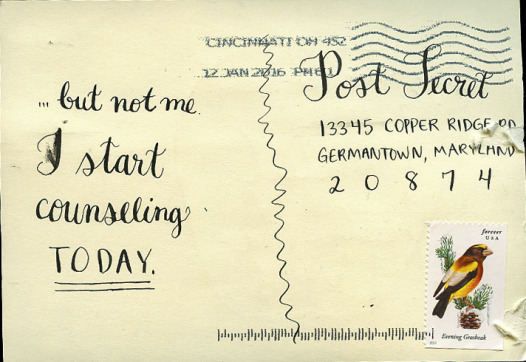 CINCINNATI OH 452
12 JAN 2016 PM
Post Secret
... but not me.
I start
counseling
TODAY.
13345 COPPER RIDGE RD
GERMANTOWN, MARYLAND
20874
forever
USA
Evening Grosbeak